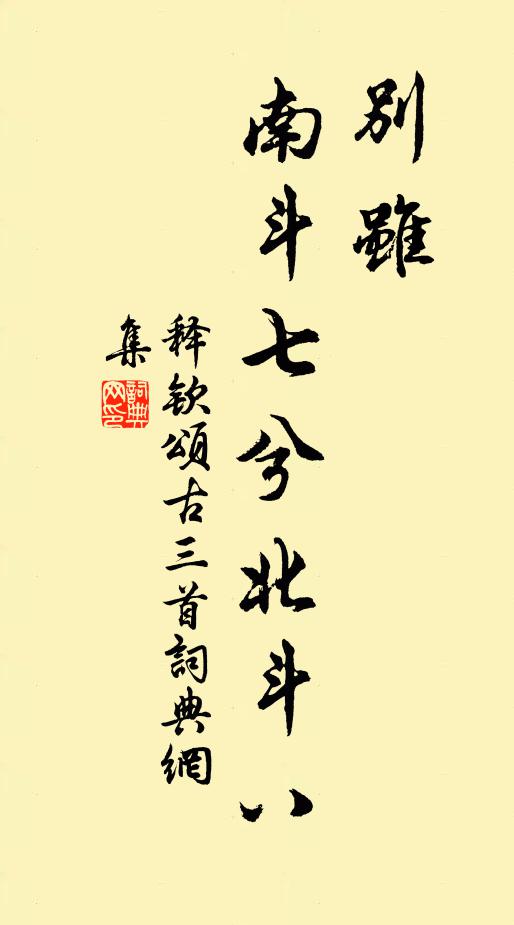 別雖
南斗七兮北斗八
释欽頌古三首詞典網
集
詞典网印